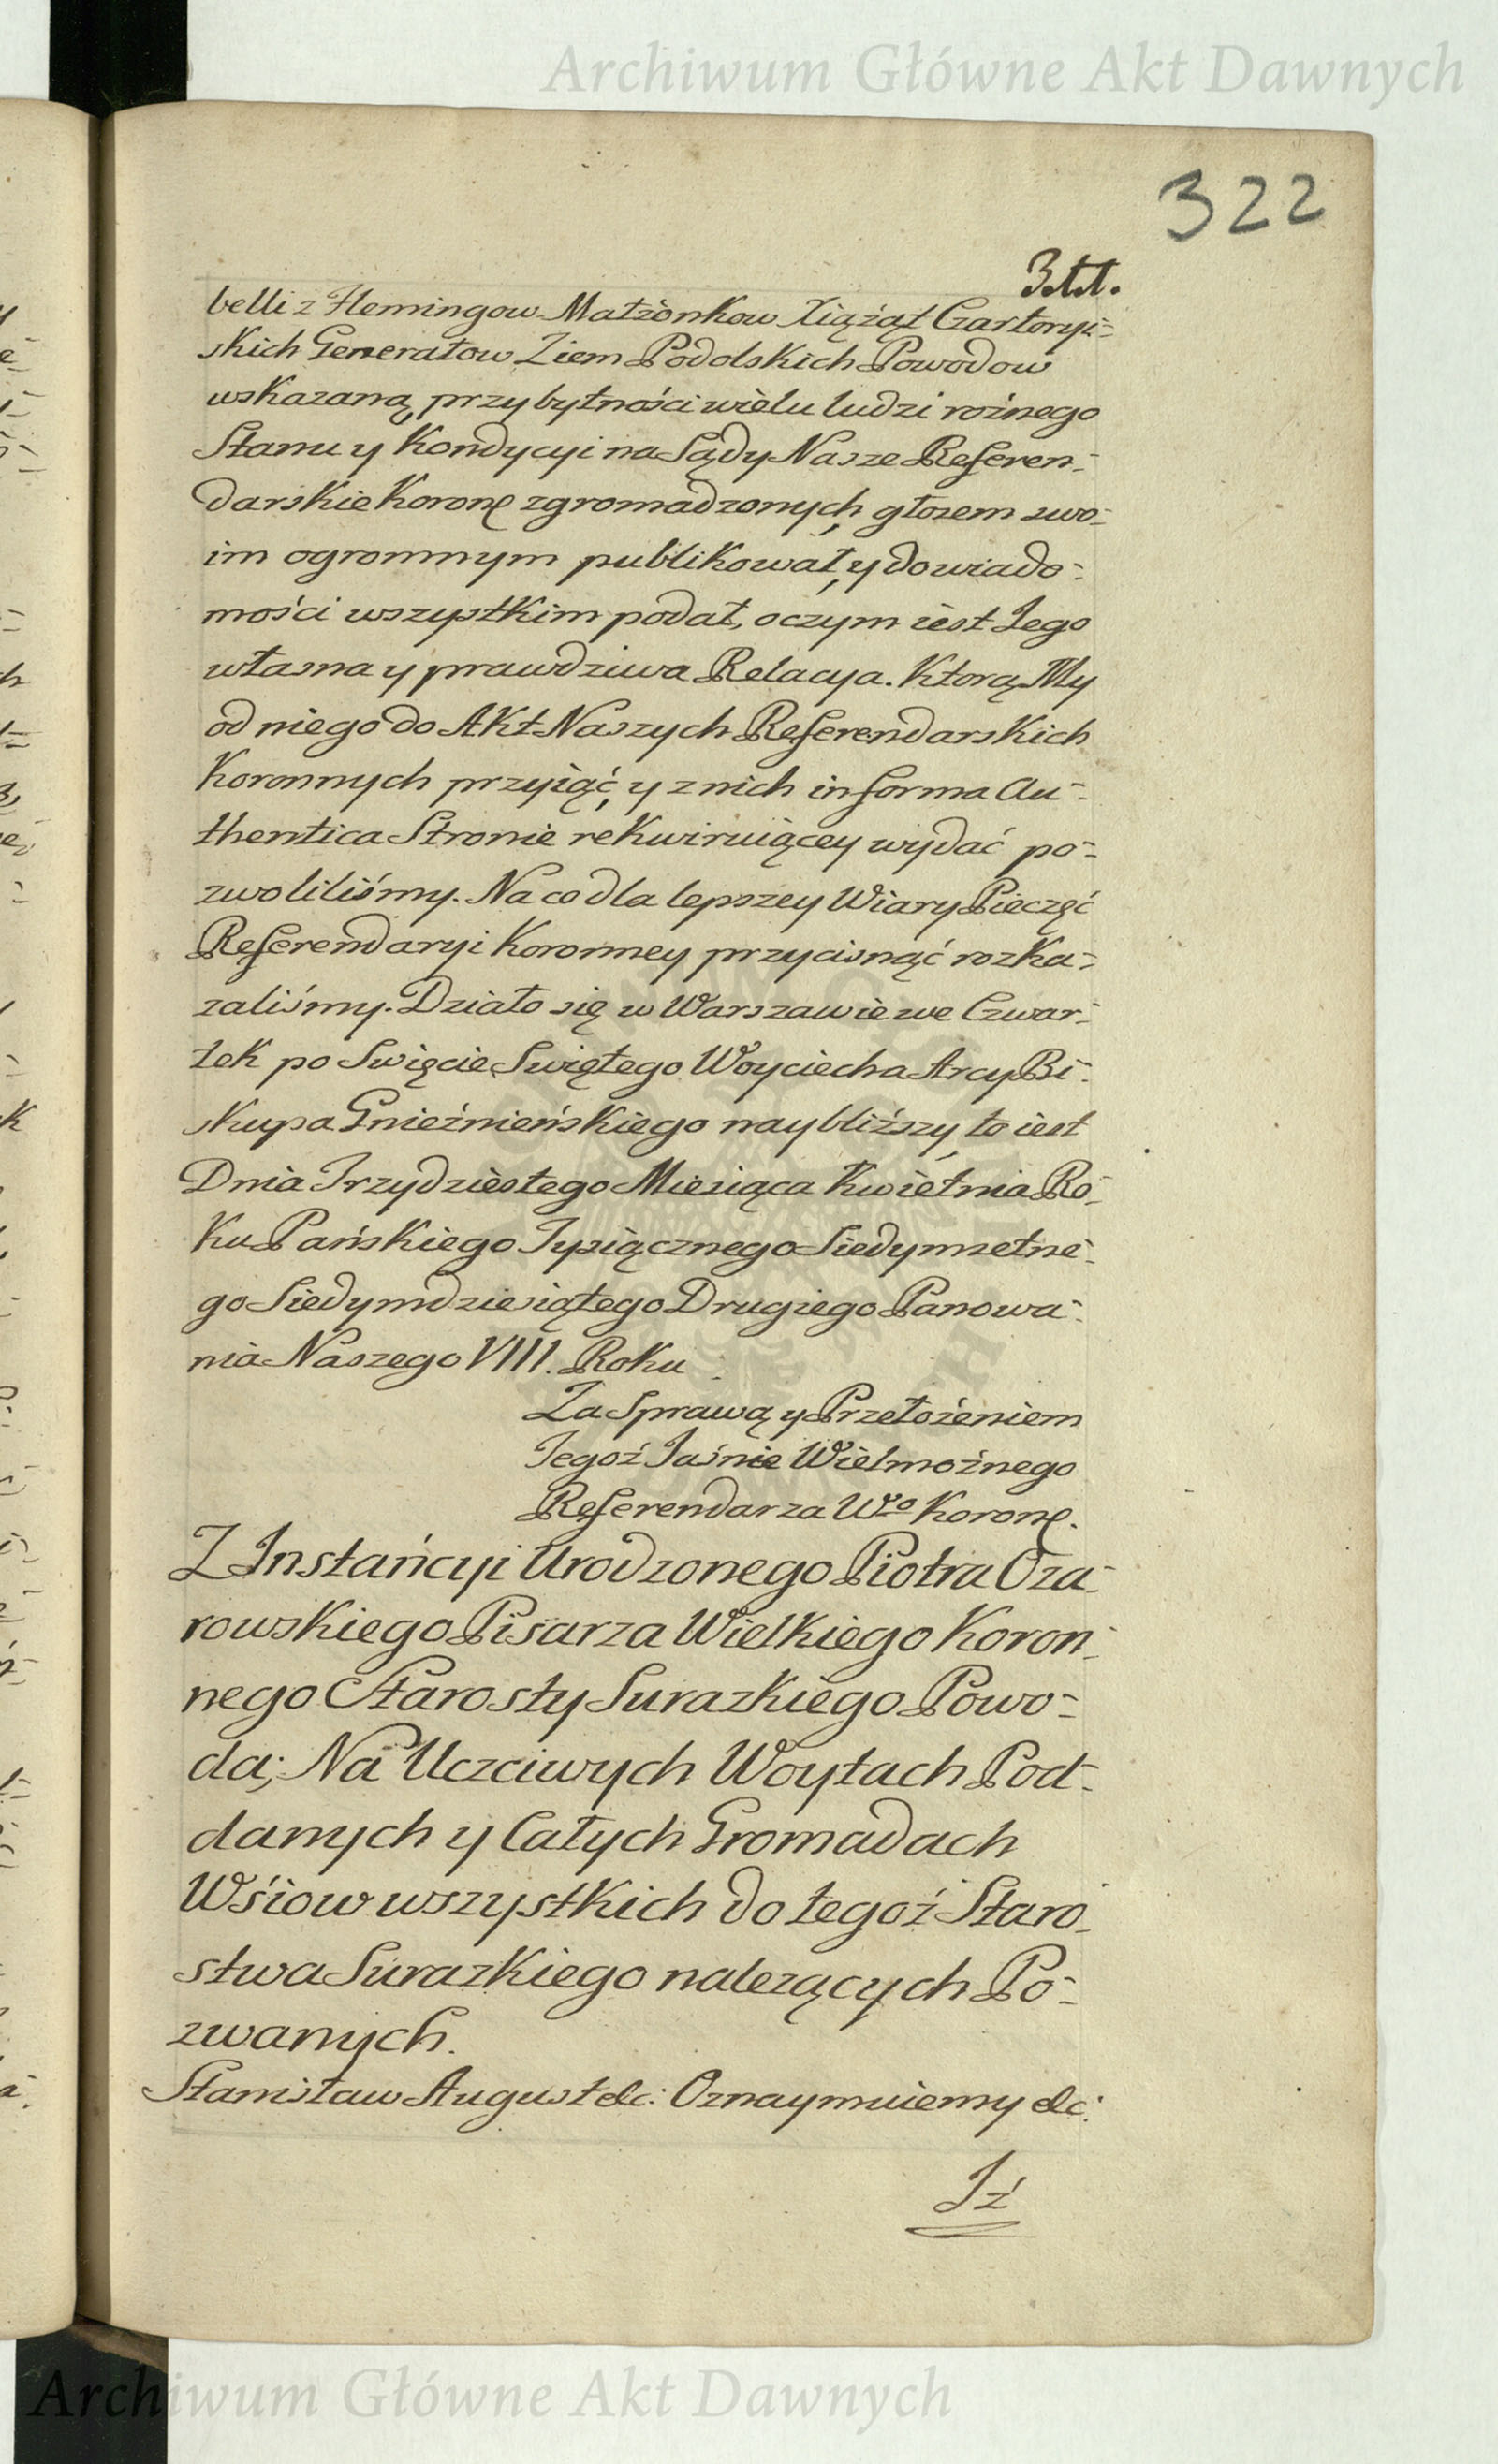 Archiwum Główne Akt Dawnych
322
belli z Flemingow Małżonkow Xiążąt Czartoryi=
skich Generałow Ziem Podolskich Powodow
wskazaną, przy bytności wielu ludzi rożnego
Stanu y Kondycyi na Sądy Nasze Referen=
darskie Koronę zgromadzonych, głosem swo=
im ogromnym publikował, y do wiado=
mości wszystkim podał, o czym iest Jego
własna y prawdziwa Relacya. Ktorą My
od niego do Akt Naszych Referendarskich
Koronnych przyiąć, y z nich in forma Au=
thentica Stronie rekwiruiącey wydać po=
zwoliliśmy. Na co dla lepszey Wiary Pieczęć
Referendaryi Koronney przycisnąć rozka=
zaliśmy. Działo się w Warszawie we Czwar=
tek po Swięcie Swiętego Woyciecha Arcy Bi=
skupa Gnieźnieńskiego naybliższy, to iest
Dnia Trzydziestego Miesiąca Kwietnia Ro=
ku Pańskiego Tysiącznego Siedymsetne=
go Siedymdziesiątego Drugiego Panowa=
nia Naszego VIII. Roku
Za Sprawą y Przełożeniem
Tegoż Jaśnie Wielmożnego
Referendarza Wo Koronę.
Z Instańcyi Urodzonego Piotra Oza=
rowskiego Pisarza Wielkiego Koron=
nego Starosty Surazkiego Powo=
da; Na Uczciwych Woytach Pod=
danych y Całych Gromadach
Wśiow wszystkich do tegoż Staro=
stwa Surazkiego nalezących Po=
zwanych.
Stanisław August etc: Oznaymuiemy etc:
Iż
Archiwum Główne Akt Dawnych